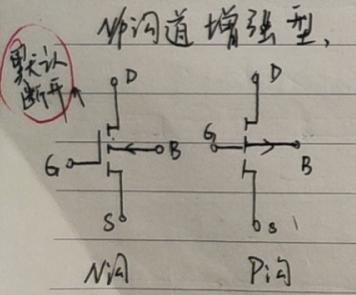 N/P沟道增强型,
默认
断开
D
D
G
B
G
B
S
S
N沟
P沟